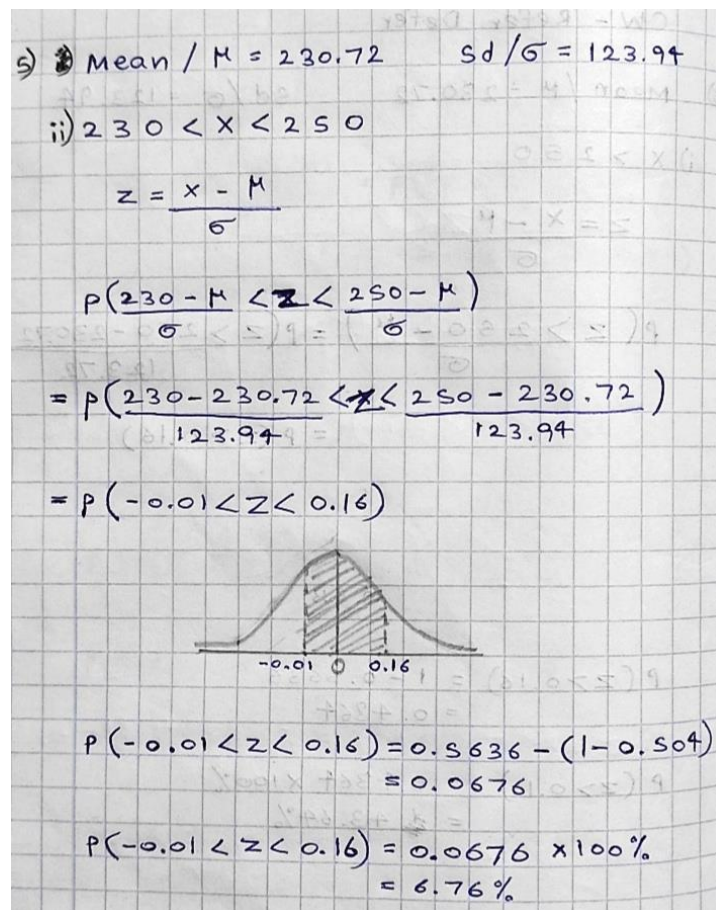 5) Mean / μ = 230.72 sd/σ = 123.94
ii) 230 < X < 250
z = x - μ / σ
P(230 - μ / σ < Z < 250 - μ / σ)
= P(230 - 230.72 / 123.94 < Z < 250 - 230.72 / 123.94)
= P(-0.01 < Z < 0.16)
-0.01 0 0.16
P(-0.01 < Z < 0.16) = 0.5636 - (1 - 0.504)
= 0.0676
P(-0.01 < Z < 0.16) = 0.0676 x 100%
= 6.76%